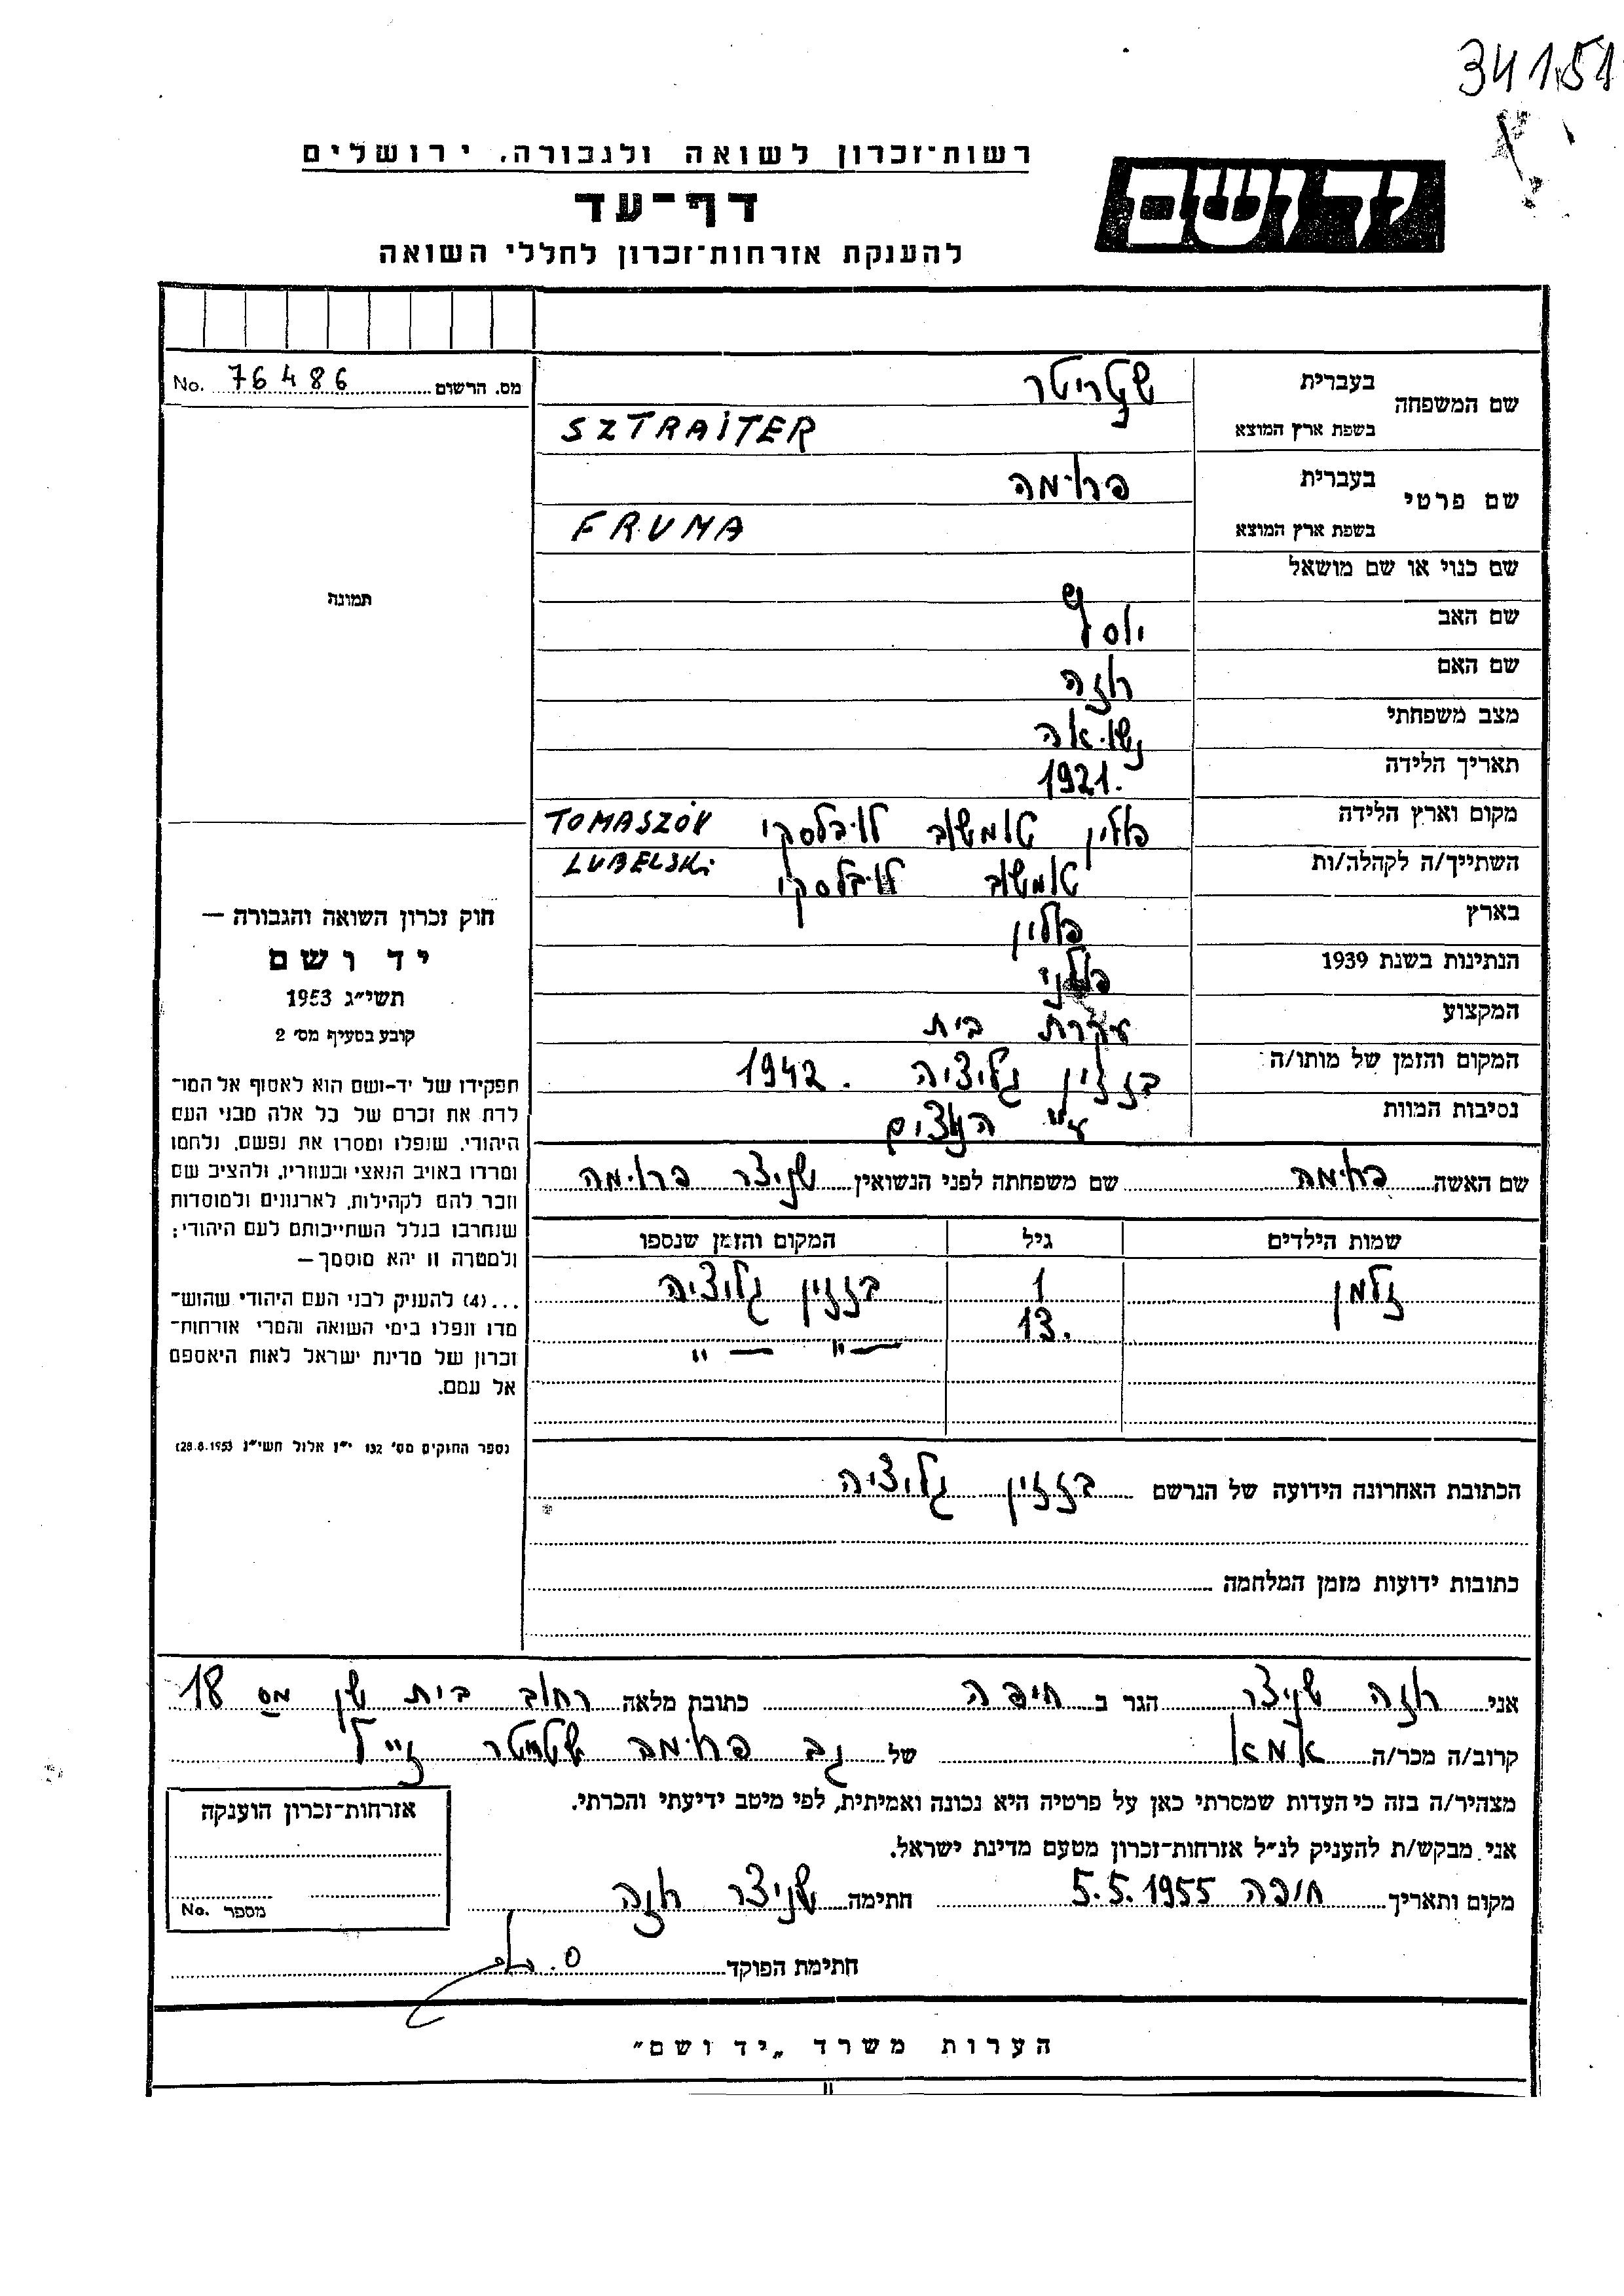 34151
רשות־זכרון לשואה ולגבורה, ירושלים
יד ושם
דף־עד
להענקת אזרחות־זכרון לחללי השואה
מס. הרשום 76486 No.
שם המשפחה
בעברית שטריטר
בשפת ארץ המוצא SZTRAITER
שם פרטי
בעברית פרומה
בשפת ארץ המוצא FRUMA
שם כנוי או שם מושאל
שם האב יוסף
שם האם רוזה
מצב משפחתי נשואה
תאריך הלידה 1921.
מקום וארץ הלידה פולין טומשוב לובלסקי TOMASZÓW
השתייך/ה לקהלה/ות טומשוב לובלסקי LUBELSKi
בארץ פולין
הנתינות בשנת 1939 פולני
המקצוע עקרת בית
המקום והזמן של מותו/ה בזזין גליציה 1942.
נסיבות המוות ע"י הנאצים
שם האשה פרומה שם משפחתה לפני הנשואין שניצר פרומה
שמות הילדים גיל המקום והזמן שנספו
זלמן 1 בזזין גליציה
13. — " — "
הכתובת האחרונה הידועה של הנרשם בזזין גליציה
כתובות ידועות מזמן המלחמה
תמונה
חוק זכרון השואה והגבורה —
יד ושם
תשי"ג 1953
קובע בסעיף מס' 2
תפקידו של יד-ושם הוא לאסוף אל המו־
לדת את זכרם של כל אלה מבני העם
היהודי, שנפלו ומסרו את נפשם, נלחמו
ומרדו באויב הנאצי ובעוזריו, ולהציב שם
וזכר להם לקהילות, לארגונים ולמוסדות
שנחרבו בגלל השתייכותם לעם היהודי;
ולמטרה זו יהא מוסמך —
...(4) להעניק לבני העם היהודי שהוש־
מדו ונפלו בימי השואה והמרי אזרחות־
זכרון של מדינת ישראל לאות היאספם
אל עמם.
(ספר החוקים מס' 132 י"ז אלול תשי"ג 28.8.1953)
אני רוזה שניצר הגר ב חיפה כתובת מלאה רחוב בית שן מס 18
קרוב/ה מכר/ה אמא של גב פרומה שטריטר ז"ל
מצהיר/ה בזה כי העדות שמסרתי כאן על פרטיה היא נכונה ואמיתית, לפי מיטב ידיעתי והכרתי.
אני מבקש/ת להעניק לנ"ל אזרחות־זכרון מטעם מדינת ישראל.
מקום ותאריך חיפה 5.5.1955 חתימה שניצר רוזה
חתימת הפוקד
אזרחות־זכרון הוענקה
מספר No.
הערות משרד „יד ושם"